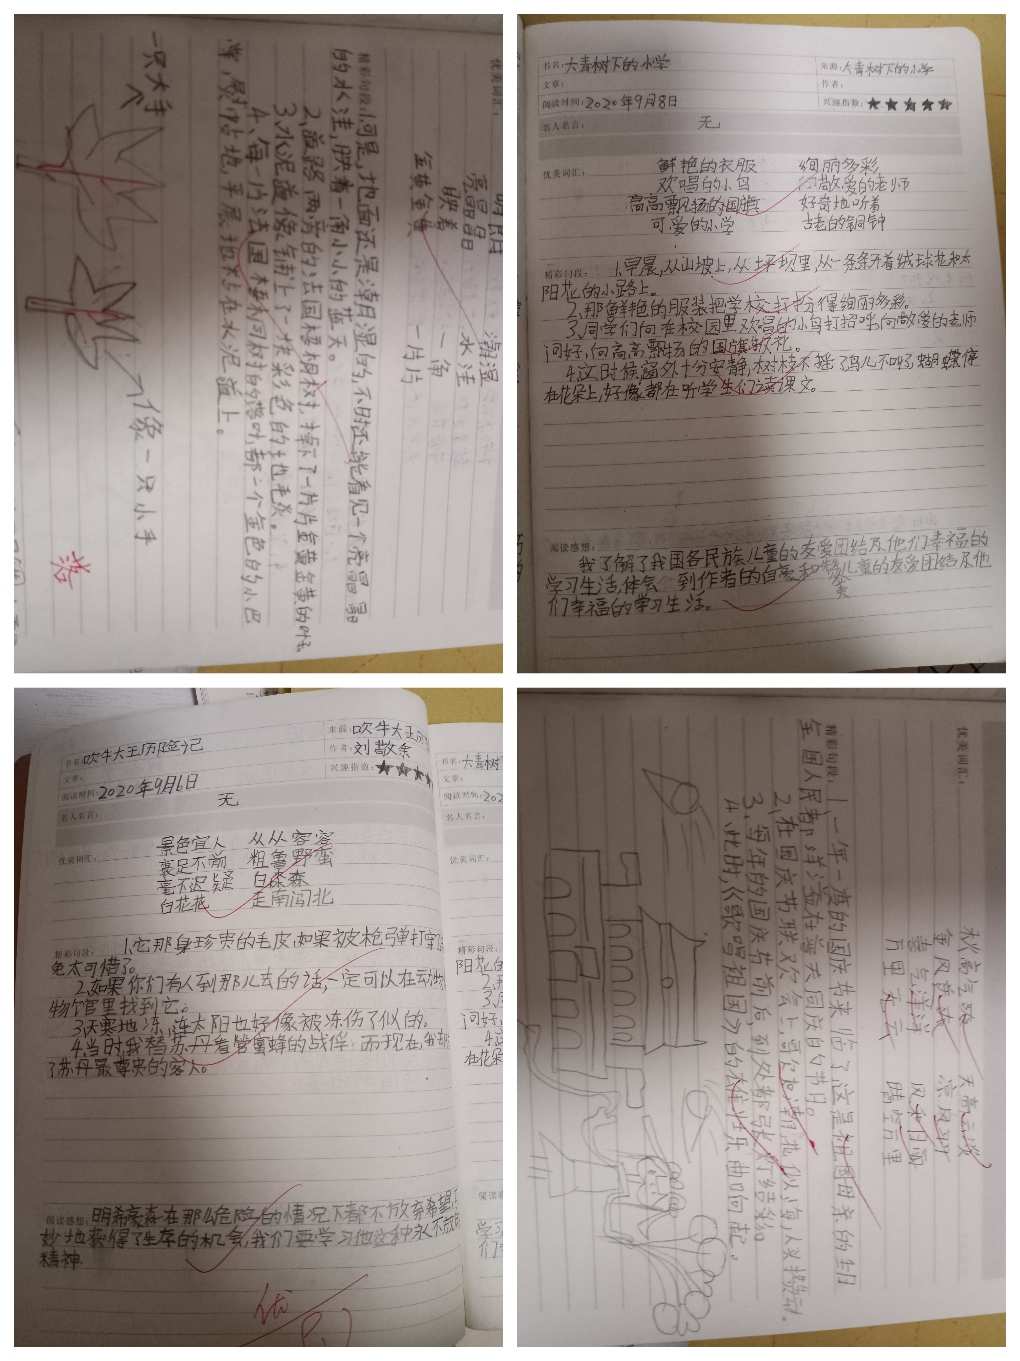 优美词汇：
明朗 潮湿
亮晶晶 水洼
映着 一角
金黄金黄 一片片
精彩句段：1.可是,地面还是潮湿的,不时还能看见一个亮晶晶
的水洼,映着一角小小的蓝天。
2.道路两旁的法国梧桐树,掉下了一片片金黄金黄的叶
3.水泥道像铺上了一块彩色的地毯。
4.每一片法国梧桐树的落叶,都一个金色的小巴
掌,熨帖地,平展地粘在水泥道上。
一只大手
像一只小手
落
书名：大青树下的小学
来源：大青树下的小学
文章：
作者：
阅读时间：2020年9月8日
兴趣指数：★★★★★
名人名言： 无
优美词汇： 鲜艳的衣服 绚丽多彩
欢唱的小鸟 敬爱的老师
高高飘扬的国旗 好奇地听着
可爱的小学 古老的铜钟
精彩句段： 1.早晨,从山坡上,从坪坝里,从一条条开着绒球花和太
阳花的小路上。
2.那鲜艳的服装把学校打扮得绚丽多彩。
3.同学们向在校园里欢唱的小鸟打招呼,向敬爱的老师
问好,向高高飘扬的国旗敬礼。
4.这时候,窗外十分安静,树枝不摇了,鸟儿不叫了,蝴蝶停
在花朵上,好像都在听学生们读课文。
阅读感想： 我了解了我国各民族儿童的友爱团结及他们幸福的
学习生活,体会 到作者的自豪和 儿童的友爱团结及他
们幸福的学习生活。
书名：吹牛大王历险记
来源：吹牛大王历
文章：
作者：刘敬余
阅读时间：2020年9月6日
兴趣指数：★★★★
名人名言： 无
优美词汇： 景色宜人 从从容容
裹足不前 粗鲁野蛮
毫不迟疑 白森森
白花花 走南闯北
精彩句段： 1.它那身珍贵的毛皮,如果被枪弹打穿了
免太可惜了。
2.如果你们有人到那儿去的话,一定可以在动物
物馆里找到它。
3.天寒地冻,连太阳也好像被冻伤了似的。
4.当时,我替苏丹看管蜜蜂的战俘,而现在,我
了苏丹最尊贵的客人。
阅读感想：明希豪森在那么危险的情况下都不放弃希望,
妙地获得了生存的机会,我们要学习他这种永不放
精神.
优
书名：大青树
文章：
阅读时间：202
名人名言：
优美词汇：
精彩句段：
阳花的
问好,
在花朵
阅读
学习
们
优美词汇：
秋高气爽 天高云淡
金风送爽 凉风习习
喜气洋洋 风和日丽
万里无云 晴空万里
精彩句段：1.一年一度的国庆节来临了,这是祖国母亲的生日
全国人民都洋溢在普天同庆的节日。
2.在国庆节联欢会上,哥们如潮,花似海,人头攒动。
3.每年的国庆节前后,到处都张灯结彩。
4.此时,《歌唱祖国》的雄壮乐曲响起。